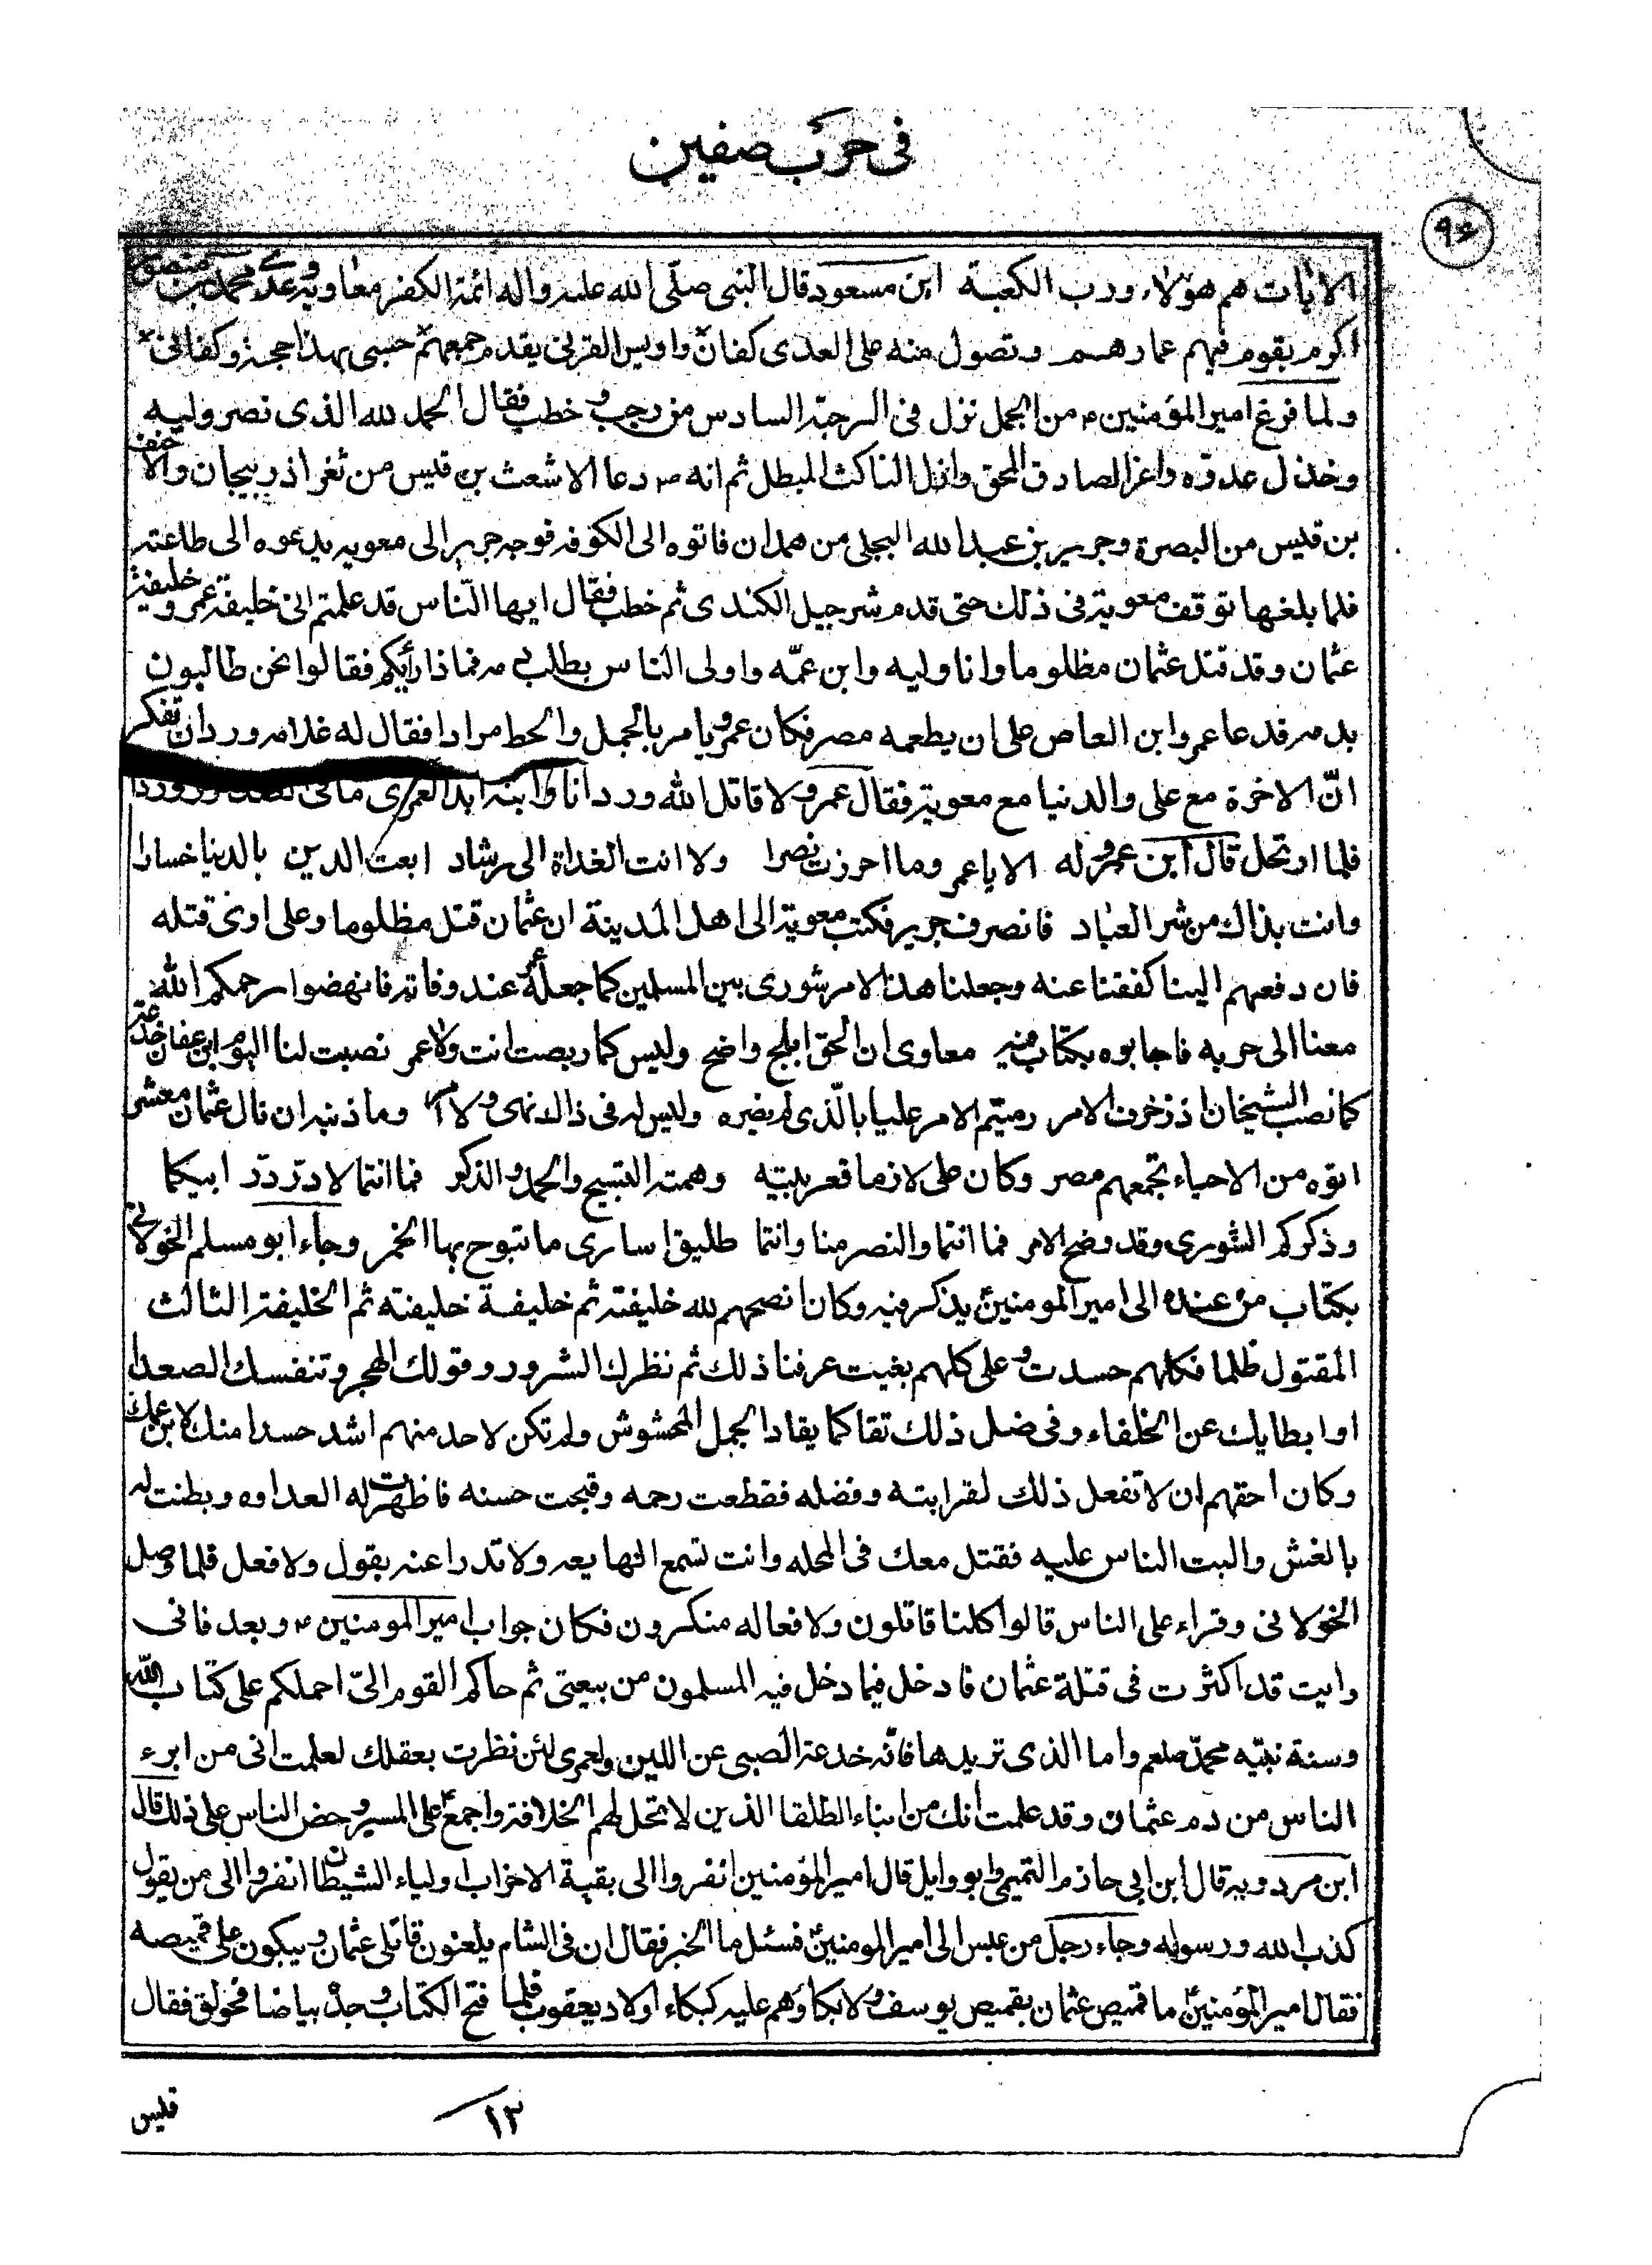 فى حرب صفين
٩٤
الايات هم هؤلاء ورب الكعبة ابن مسعود قال النبى صلّى الله عليه واله ائمة الكفر معاوية وعمرو محمد بن منصور
اكرم بقوم فيهم عمارهم وتصول منه على العدى كفان واويس القرنى يقدم جمعهم حسبى بهذا حجة وكفانى
ولما فرغ امير المؤمنين ع من الجمل نزل فى الرحبة السادس من رجب وخطب فقال الحمد لله الذى نصر وليه
وخذل عدوّه واعز الصادق المحق واذل الناكث المبطل ثم انه ع دعا الاشعث بن قيس من ثغر اذربيجان والاحنف
بن قيس من البصرة وجرير بن عبد الله البجلى من همدان فاتوه الى الكوفة فوجه جرير الى معوية يدعوه الى طاعته
فلما بلغها توقف معوية فى ذلك حتى قدم شرجيل الكندى ثم خطب فقال ايها النّاس قد علمتم انى خليفة عمر وخليفة
عثمان وقد قتل عثمان مظلوما وانا وليه وابن عمّه واولى الناس بطلب دمه فماذا رأيكم فقالوا نحن طالبون
بدمه فدعا عمرو ابن العاص على ان يطعمه مصر فكان عمرو يامر بالحمل والحط مرارا فقال له غلامه وردان تفكر
انّ الاخرة مع على والدنيا مع معوية فقال عمرو لا قاتل الله وردانا وابنه ابدا لعمرى مافى الصدر وردان
فلما ارتحل قال ابن عمرو له الا يا عمرو ما احرزت نصرا ولا انت الغداة الى رشاد ابعت الدين بالدنيا خسارا
وانت بذاك من شر العباد فانصرف جرير فكتب معوية الى اهل المدينة ان عثمان قتل مظلوما وعلى اوى قتله
فان دفعهم الينا كففنا عنه وجعلنا هذا الامر شورى بين المسلمين كما جعله عمر عند وفاته فانهضوا رحمكم الله
معنا الى حربه فاجابوه بكتاب فيه معاوى ان الحق ابلج واضح وليس كما ربصت انت ولا عمر نصبت لنا اليوم ابن عفان خدعة
كما نصب الشيخان اذ زخرف الامر رميتم الامر عليا بالّذى لم يضره وليس له فى ذاك نهى ولا امر وما ذنبه ان نال عثمان معشر
اتوه من الاحياء تجمعهم مصر وكان على لازما قعر بيته وهمته التسبيح والحمد والذكر فما انتما لا درّ درّ ابيكما
وذكركم الشورى وقد وضح الامر فما انتما والنصر منا وانتما طليق اسارى ما تبوح بها الخمر وجاء ابو مسلم الخولانى
بكتاب من عنده الى امير المومنين ع يذكر فيه وكان انصحهم لله خليفته ثم خليفة خليفته ثم الخليفة الثالث
المقتول ظلما فكلهم حسدت وعلى كلهم بغيت عرفنا ذلك ثم نظرك الشرور وقولك الهجر وتنفسك الصعدا
وابطايك عن الخلفاء وفى ضل ذلك تقاد كما يقاد الجمل المخشوش ولم تكن لاحد منهم اشد حسدا منك لابن عمك
وكان احقهم ان لا تفعل ذلك لقرابته وفضله فقطعت رحمه وقبحت حسنه فاظهرت له العداوه وبطنت له
بالغش والبت الناس عليه فقتل معك فى المحله وانت تسمع الهايعه ولا تدراعنه بقول ولا فعل فلما وصل
الخولانى وقراء على الناس قالوا كلنا قاتلون ولافعاله منكرون فكان جواب امير المومنين ع وبعد فانى
رايت قد اكثرت فى قتلة عثمان فادخل فيما دخل فيه المسلمون من بيعتى ثم حاكم القوم الىّ احملكم على كتاب الله
وسنة نبيّه محمّد صلعم واما الذى تريدها فانّه خدعة الصبى عن اللبن ولعمرى لئن نظرت بعقلك لعلمت انى من ابرء
الناس من دم عثمان وقد علمت انك من ابناء الطلقا الذين لا تحل لهم الخلافة واجمع ع على المسير وحض الناس على ذلك قال
ابن مردويه قال ابن ابى حازم التميمى وابو وايل قال امير المؤمنين انفروا الى بقية الاحزاب اولياء الشيطان انفروا الى من يقول
كذب الله ورسوله وجاء رجل من عبس الى امير المومنين ع فسئل ما الخبر فقال ان فى الشام يلعنون قاتلى عثمان ويبكون على قميصه
فقال امير المؤمنين ع ما قميص عثمان بقميص يوسف ولا بكاؤهم عليه كبكاء اولاد يعقوب فلما فتح الكتاب وجده بياضا فحولق فقال
١٣
قليس